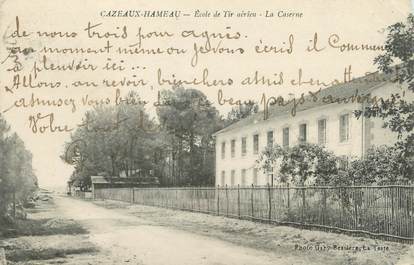 CAZEAUX-HAMEAU — École de Tir aérien - La Caserne
de nous trois pour agnès.
au moment même ou je vous écris il Commence
à pleuvoir ici...
Allons, au revoir, bien chers amis
amusez vous bien beau pays d'auvergne
Votre
Photo Gaby Bessière, La Teste